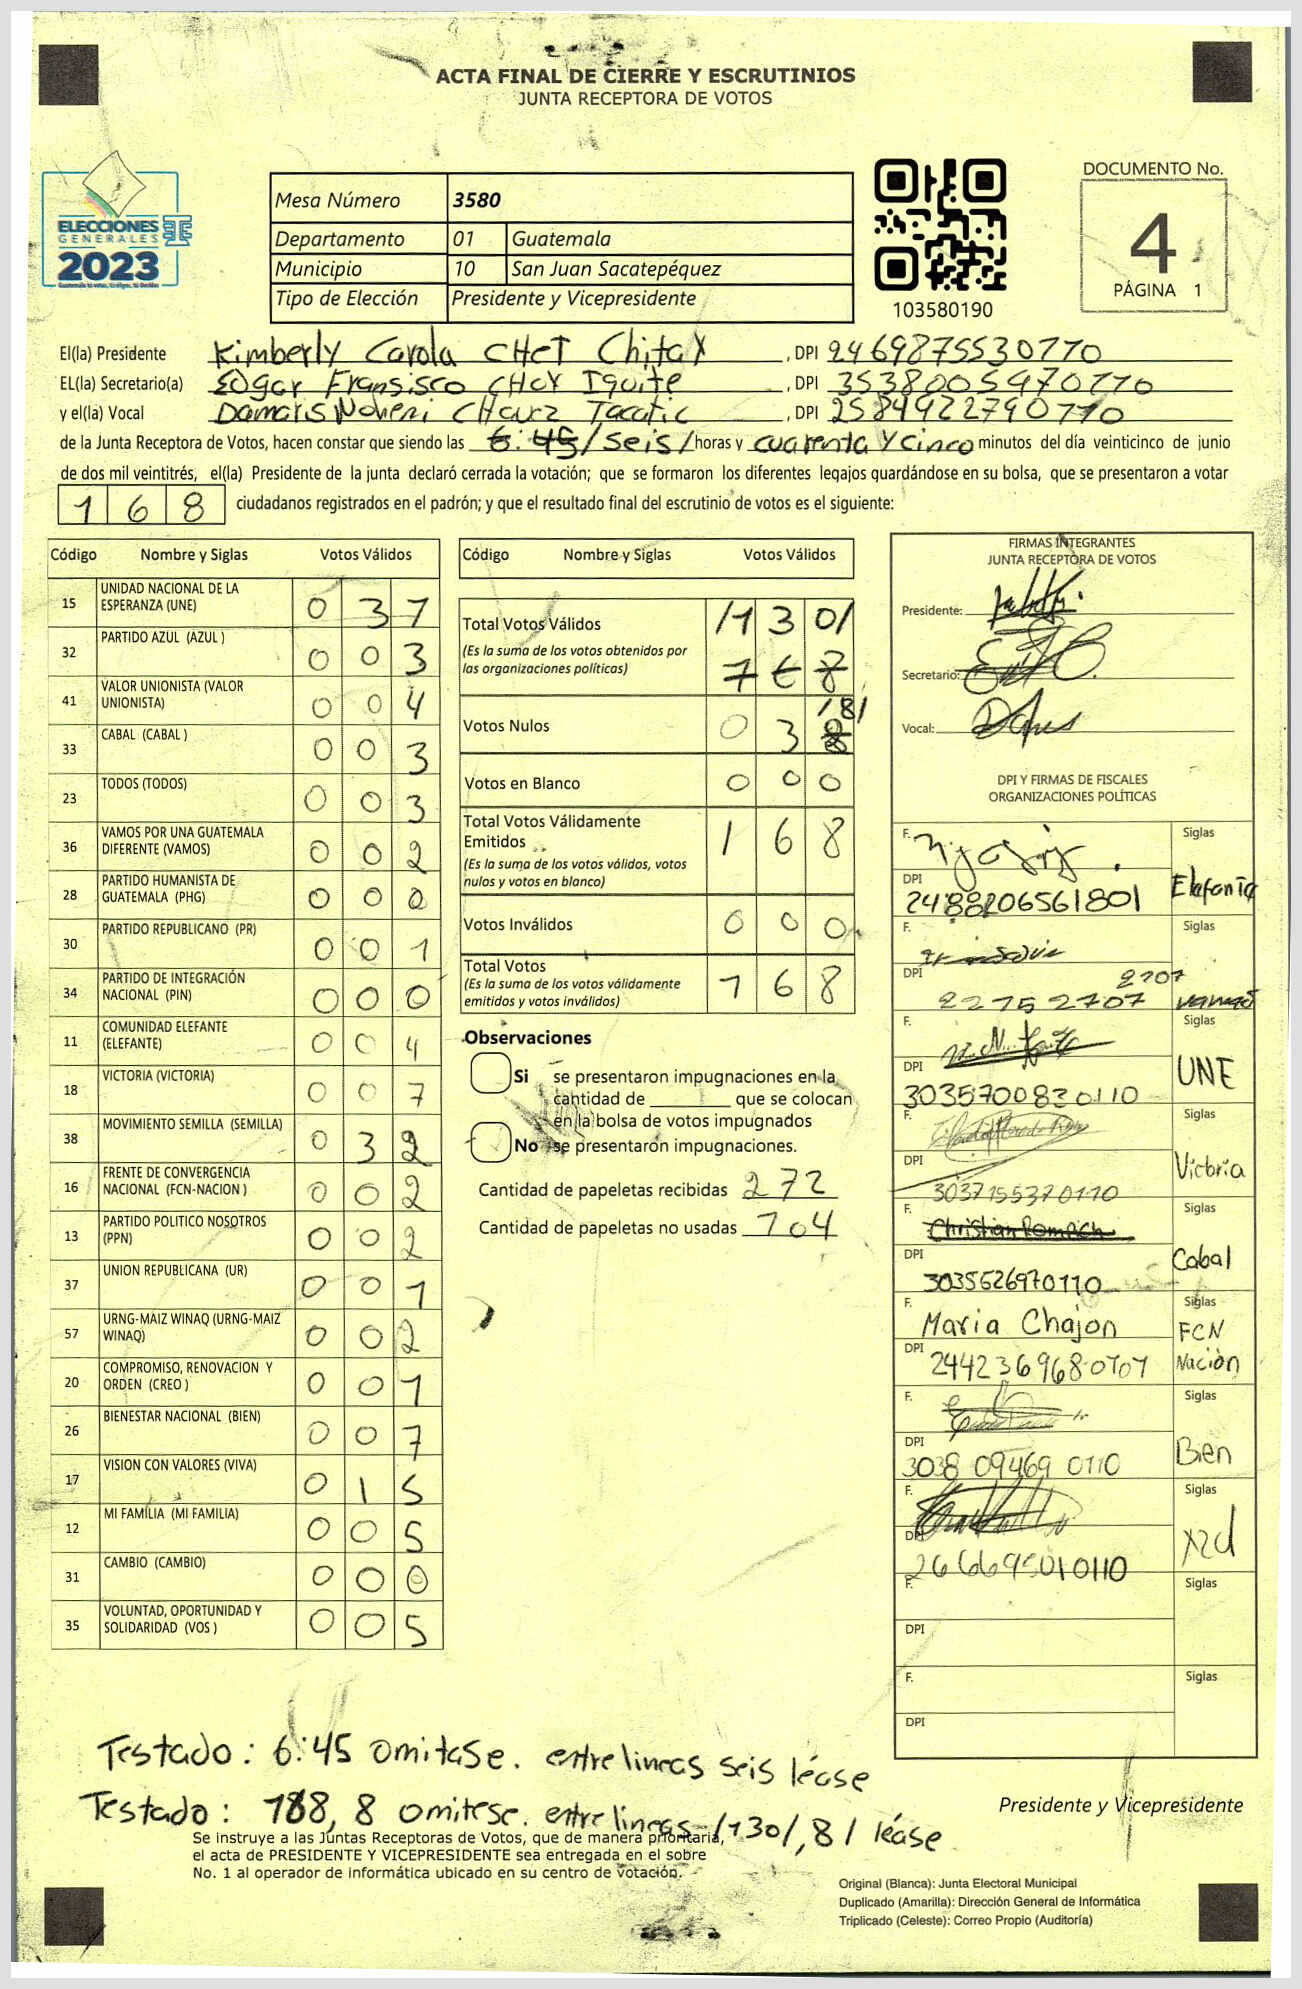 ACTA FINAL DE CIERRE Y ESCRUTINIOS
JUNTA RECEPTORA DE VOTOS
ELECCIONES
GENERALES
2023
Mesa Número 3580
Departamento 01 Guatemala
Municipio 10 San Juan Sacatepéquez
Tipo de Elección Presidente y Vicepresidente
103580190
DOCUMENTO No.
4
PÁGINA 1
El(la) Presidente Kimberly Carola CHET Chitax , DPI 2469875530110
EL(la) Secretario(a) Edgar Fransisco CHOY Iquite , DPI 3538005970110
y el(la) Vocal Damaris Noheni CHavez Tacatic , DPI 2584922790110
de la Junta Receptora de Votos, hacen constar que siendo las 6:45 /seis/ horas y cuarenta y cinco minutos del día veinticinco de junio
de dos mil veintitrés, el(la) Presidente de la junta declaró cerrada la votación; que se formaron los diferentes legajos quardándose en su bolsa, que se presentaron a votar
168 ciudadanos registrados en el padrón; y que el resultado final del escrutinio de votos es el siguiente:
Código Nombre y Siglas Votos Válidos
15 UNIDAD NACIONAL DE LA ESPERANZA (UNE) 0 3 7
32 PARTIDO AZUL (AZUL ) 0 0 3
41 VALOR UNIONISTA (VALOR UNIONISTA) 0 0 4
33 CABAL (CABAL ) 0 0 3
23 TODOS (TODOS) 0 0 3
36 VAMOS POR UNA GUATEMALA DIFERENTE (VAMOS) 0 0 2
28 PARTIDO HUMANISTA DE GUATEMALA (PHG) 0 0 0
30 PARTIDO REPUBLICANO (PR) 0 0 1
34 PARTIDO DE INTEGRACIÓN NACIONAL (PIN) 0 0 0
11 COMUNIDAD ELEFANTE (ELEFANTE) 0 0 4
18 VICTORIA (VICTORIA) 0 0 7
38 MOVIMIENTO SEMILLA (SEMILLA) 0 3 2
16 FRENTE DE CONVERGENCIA NACIONAL (FCN-NACION ) 0 0 2
13 PARTIDO POLITICO NOSOTROS (PPN) 0 0 2
37 UNION REPUBLICANA (UR) 0 0 1
57 URNG-MAIZ WINAQ (URNG-MAIZ WINAQ) 0 0 2
20 COMPROMISO, RENOVACION Y ORDEN (CREO ) 0 0 1
26 BIENESTAR NACIONAL (BIEN) 0 0 7
17 VISION CON VALORES (VIVA) 0 1 5
12 MI FAMILIA (MI FAMILIA) 0 0 5
31 CAMBIO (CAMBIO) 0 0 0
35 VOLUNTAD, OPORTUNIDAD Y SOLIDARIDAD (VOS ) 0 0 5
Código Nombre y Siglas Votos Válidos
Total Votos Válidos /1 3 0/
(Es la suma de los votos obtenidos por
las organizaciones políticas) 1 6 8
Votos Nulos 0 3 8 /8/
Votos en Blanco 0 0 0
Total Votos Válidamente
Emitidos 1 6 8
(Es la suma de los votos válidos, votos
nulos y votos en blanco)
Votos Inválidos 0 0 0
Total Votos
(Es la suma de los votos válidamente
emitidos y votos inválidos) 1 6 8
Observaciones
Si se presentaron impugnaciones en la
cantidad de ________ que se colocan
en la bolsa de votos impugnados
No se presentaron impugnaciones.
Cantidad de papeletas recibidas 272
Cantidad de papeletas no usadas 104
FIRMAS INTEGRANTES
JUNTA RECEPTORA DE VOTOS
Presidente:
Secretario:
Vocal:
DPI Y FIRMAS DE FISCALES
ORGANIZACIONES POLÍTICAS
F. Siglas
DPI Elefante
F. Siglas
2707
DPI 22752 2707
F. Siglas
DPI 3035700830110 UNE
F. Siglas
DPI 3037155370110 Victoria
F. Siglas
DPI 3035626970110 Cabal
F. Maria Chajon Siglas
FCN
DPI 2442369680101 Nación
F. Siglas
DPI 3038 09469 0110 Bien
F. Siglas
DPI
F. Siglas
DPI
F. Siglas
DPI
Testado: 6:45 omitase. entrelineas seis léase
Testado: 168, 8 omitese. entrelineas /130/,8/ léase
Presidente y Vicepresidente
Se instruye a las Juntas Receptoras de Votos, que de manera prioritaria,
el acta de PRESIDENTE Y VICEPRESIDENTE sea entregada en el sobre
No. 1 al operador de informática ubicado en su centro de votación.
Original (Blanca): Junta Electoral Municipal
Duplicado (Amarilla): Dirección General de Informática
Triplicado (Celeste): Correo Propio (Auditoría)